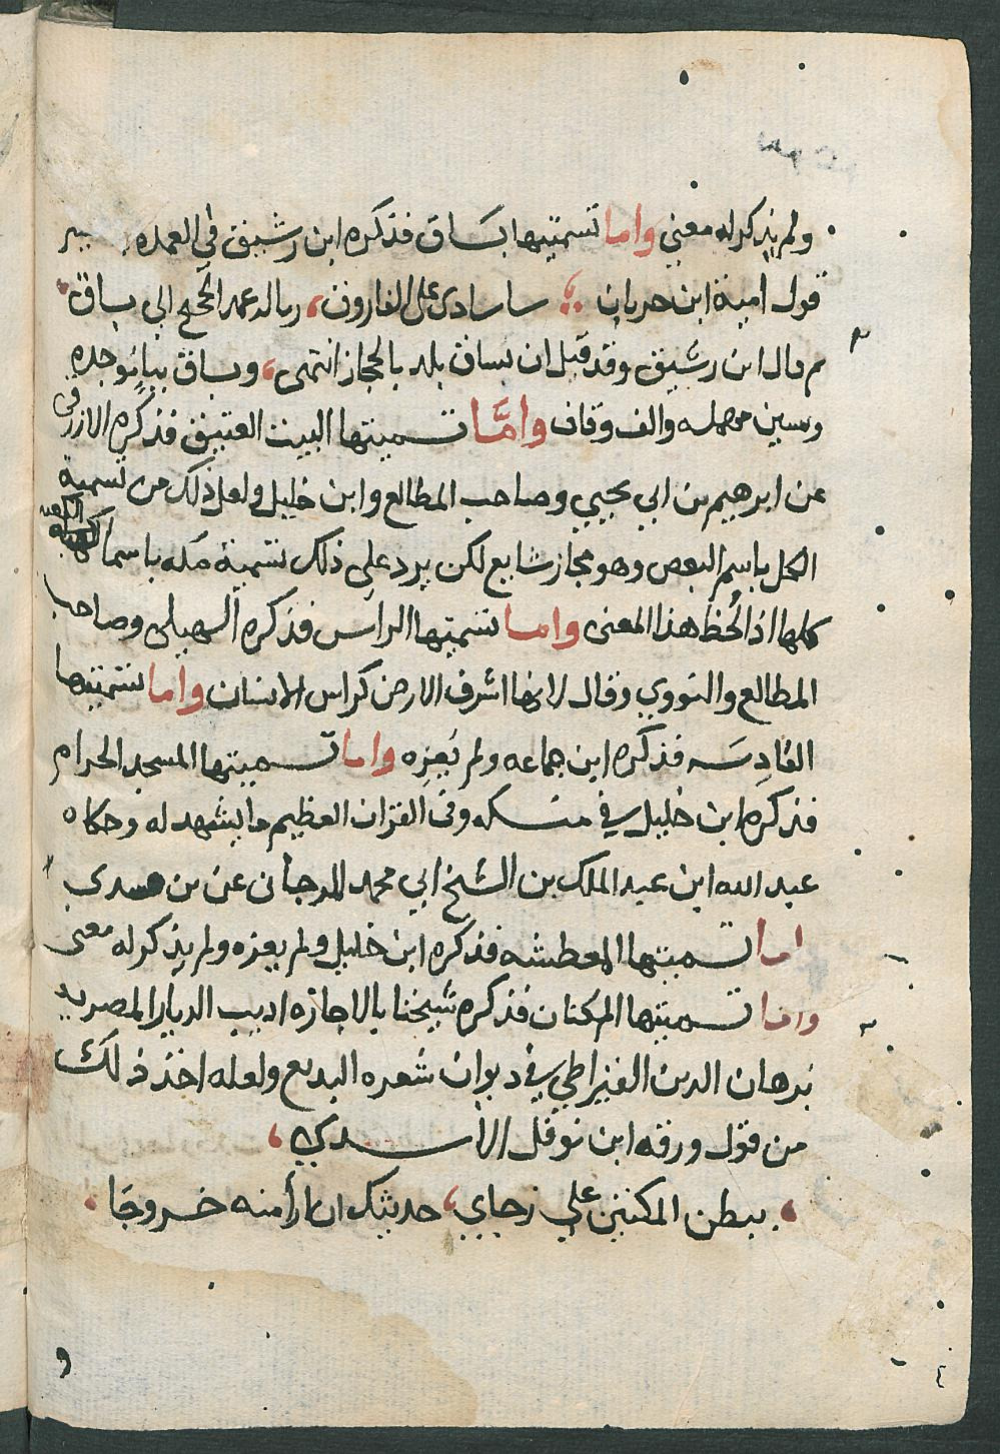 ولم يذكر له معني واما تسميتها بساق فذكره ابن رشيق في العمده
قول امية ابن حربان ساسادي علي الفاروق ربا له عمد الحجيج الي بساق
م قال ابن رشيق وقد قيل ان بساق بلد بالحجاز انتهى وبساق بباء موحده
وسين مهمله والف وقاف وامّا تسميتها البيت العتيق فذكره الازرقي
عن ابرهيم بن ابي يحيي وصاحب المطالع وابن خليل ولعل ذلك من تسمية
الكل باسم البعض وهو مجاز شايع لكن يرد علي ذلك تسمية مكه باسما الكعبة
كلها اذا لُحظ هذا المعنى واما تسميتها الراس فذكره السهيلي وصاحب
المطالع والنووي وقال لانها اشرف الارض كراس الانسان واما تسميتها
القادِسَه فذكره ابن جماعه ولم يَعزه واما تسميتها المسجد الحرام
فذكره ابن خليل في منسكه وفي القران العظيم ما يشهد له وحكاه
عبد الله ابن عبد الملك بن الشيخ ابي محمد المرجاني عن بن مسدي
اما تسميتها المعطشه فذكره ابن خليل ولم يعزه ولم يذكر له معنى
واما تسميتها المكتان فذكره شيخنا بالاجازه اديب الديار المصريه
برهان الدين القيراطي في ديوان شعره البديع ولعله اخذ ذلك
من قول ورقه ابن نوفل الأسدي
ببطن المكتين علي رجاي حديثك ان ارأ منه خروجَا
و
٤